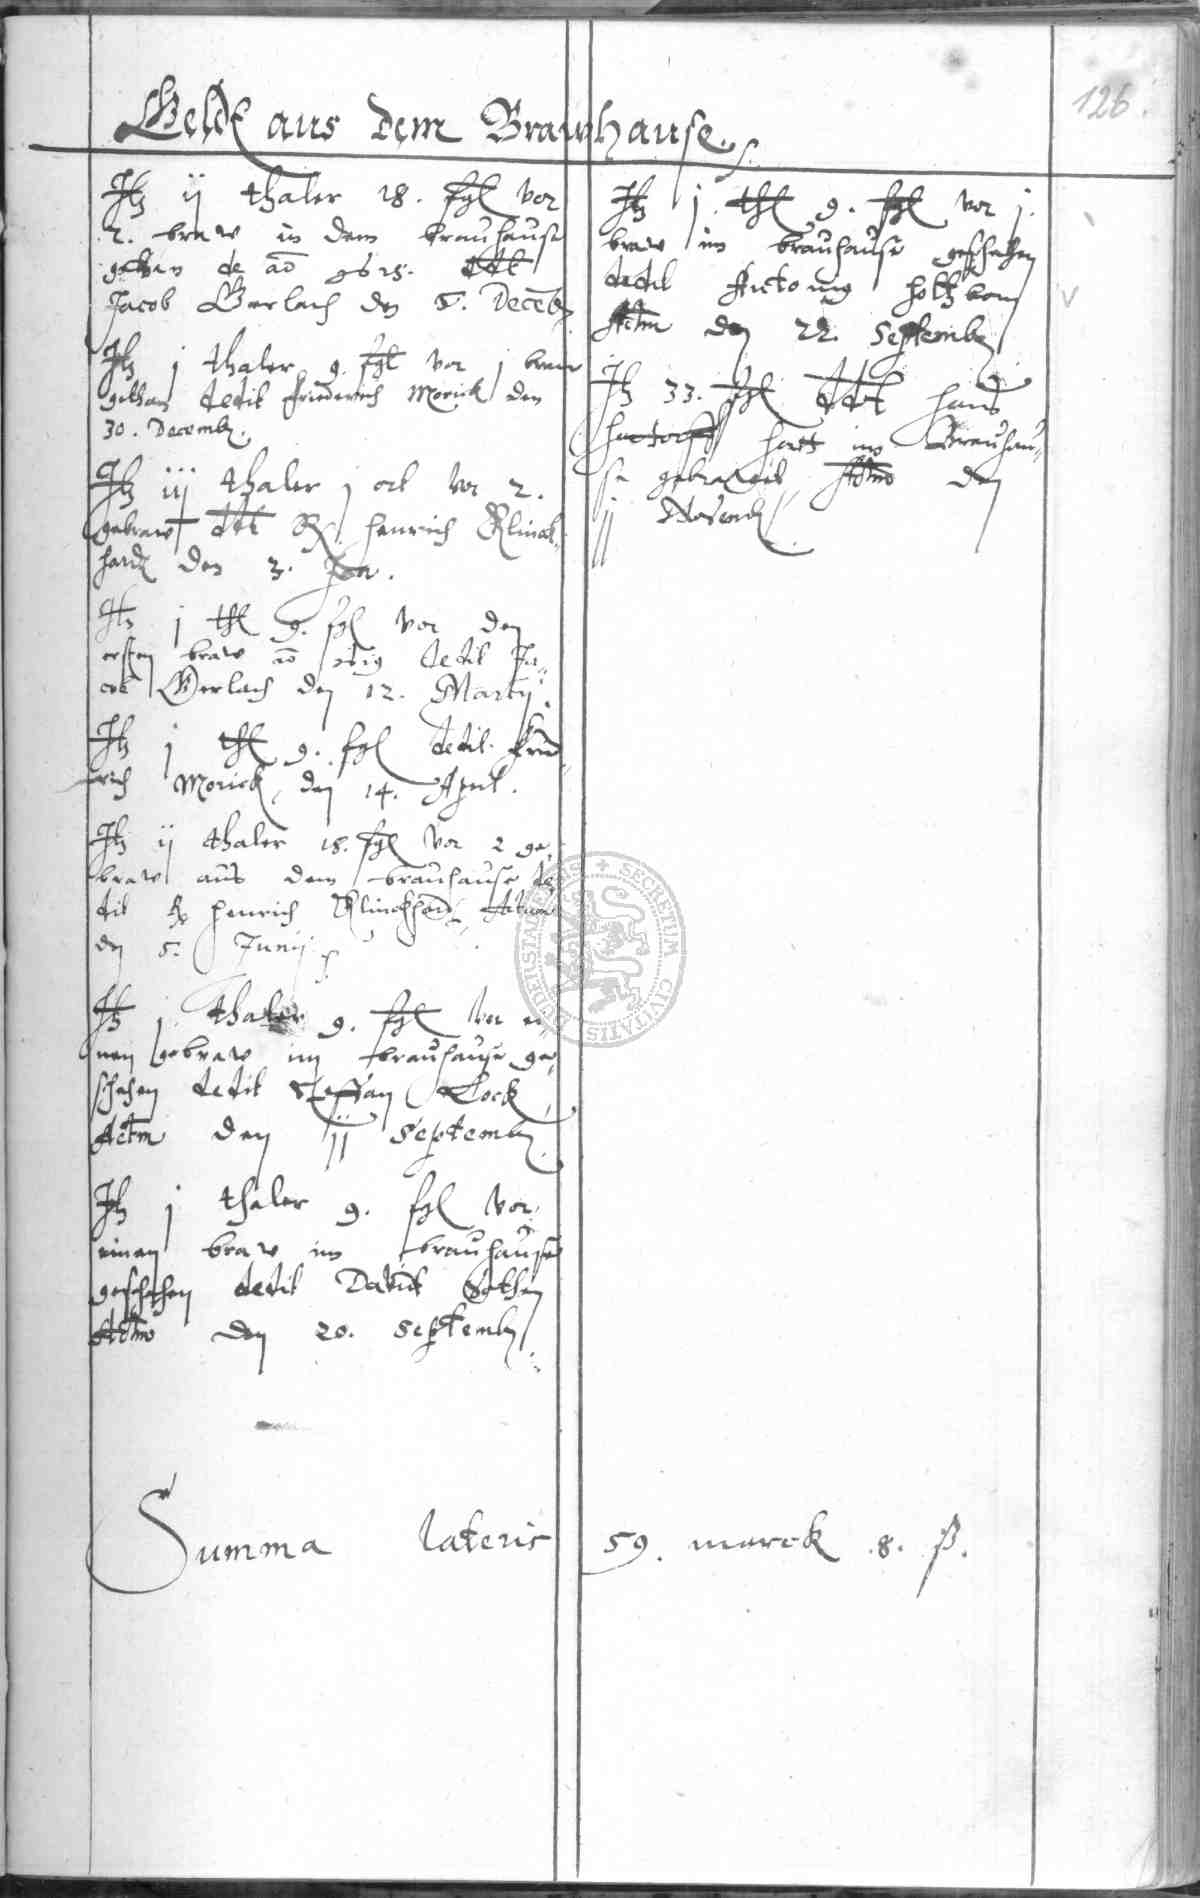 126.
Geldt aus dem Brawhause.
Itz ij thaler 18. fgl vor
2. braw in dem brauhause
gethan de ao
Jacob Gerlach den 5. Decemb.
Itz j thaler 9. fgl vor j braw
gethan dedit Friederich Morick den
30. Decemb.
Itz iij thaler j ort vor 2.
gebraw ddt H. Henrich Klinck-
hardt den 3. Jan.
Itz j thl 9. fgl vor den
ersten braw ao dedit Ja-
cob Gerlach den 12. Martij.
Itz j thl 9. fgl dedit Fried-
rich Morick den 14. April.
Itz ij thaler 18. fgl vor 2 ge-
braw aus dem brauhause de-
dit H. Henrich Klinckhardt Actum
den 5. Junij
Itz j thaler 9. fgl vor ei-
nen gebraw im brauhause ge-
schehen dedit Steffan Cock
Actm den 11 Septemb.
Itz j thaler 9. fgl vor
einen braw im brauhause
geschehen dedit Davidt
Actm den 20. Septemb.
Itz j thl 9. fgl vor j.
braw im brauhause geschehen
dedit Antonig holtzborn
Actm den 22. Septemb.
Itz 33. fgl ddt hans
hatorff hatt im Brauhau-
se gebrawet Actm den
11 Novemb.
Summa lateris 59. marck 8. ß.
SECRETUM CIVITATIS